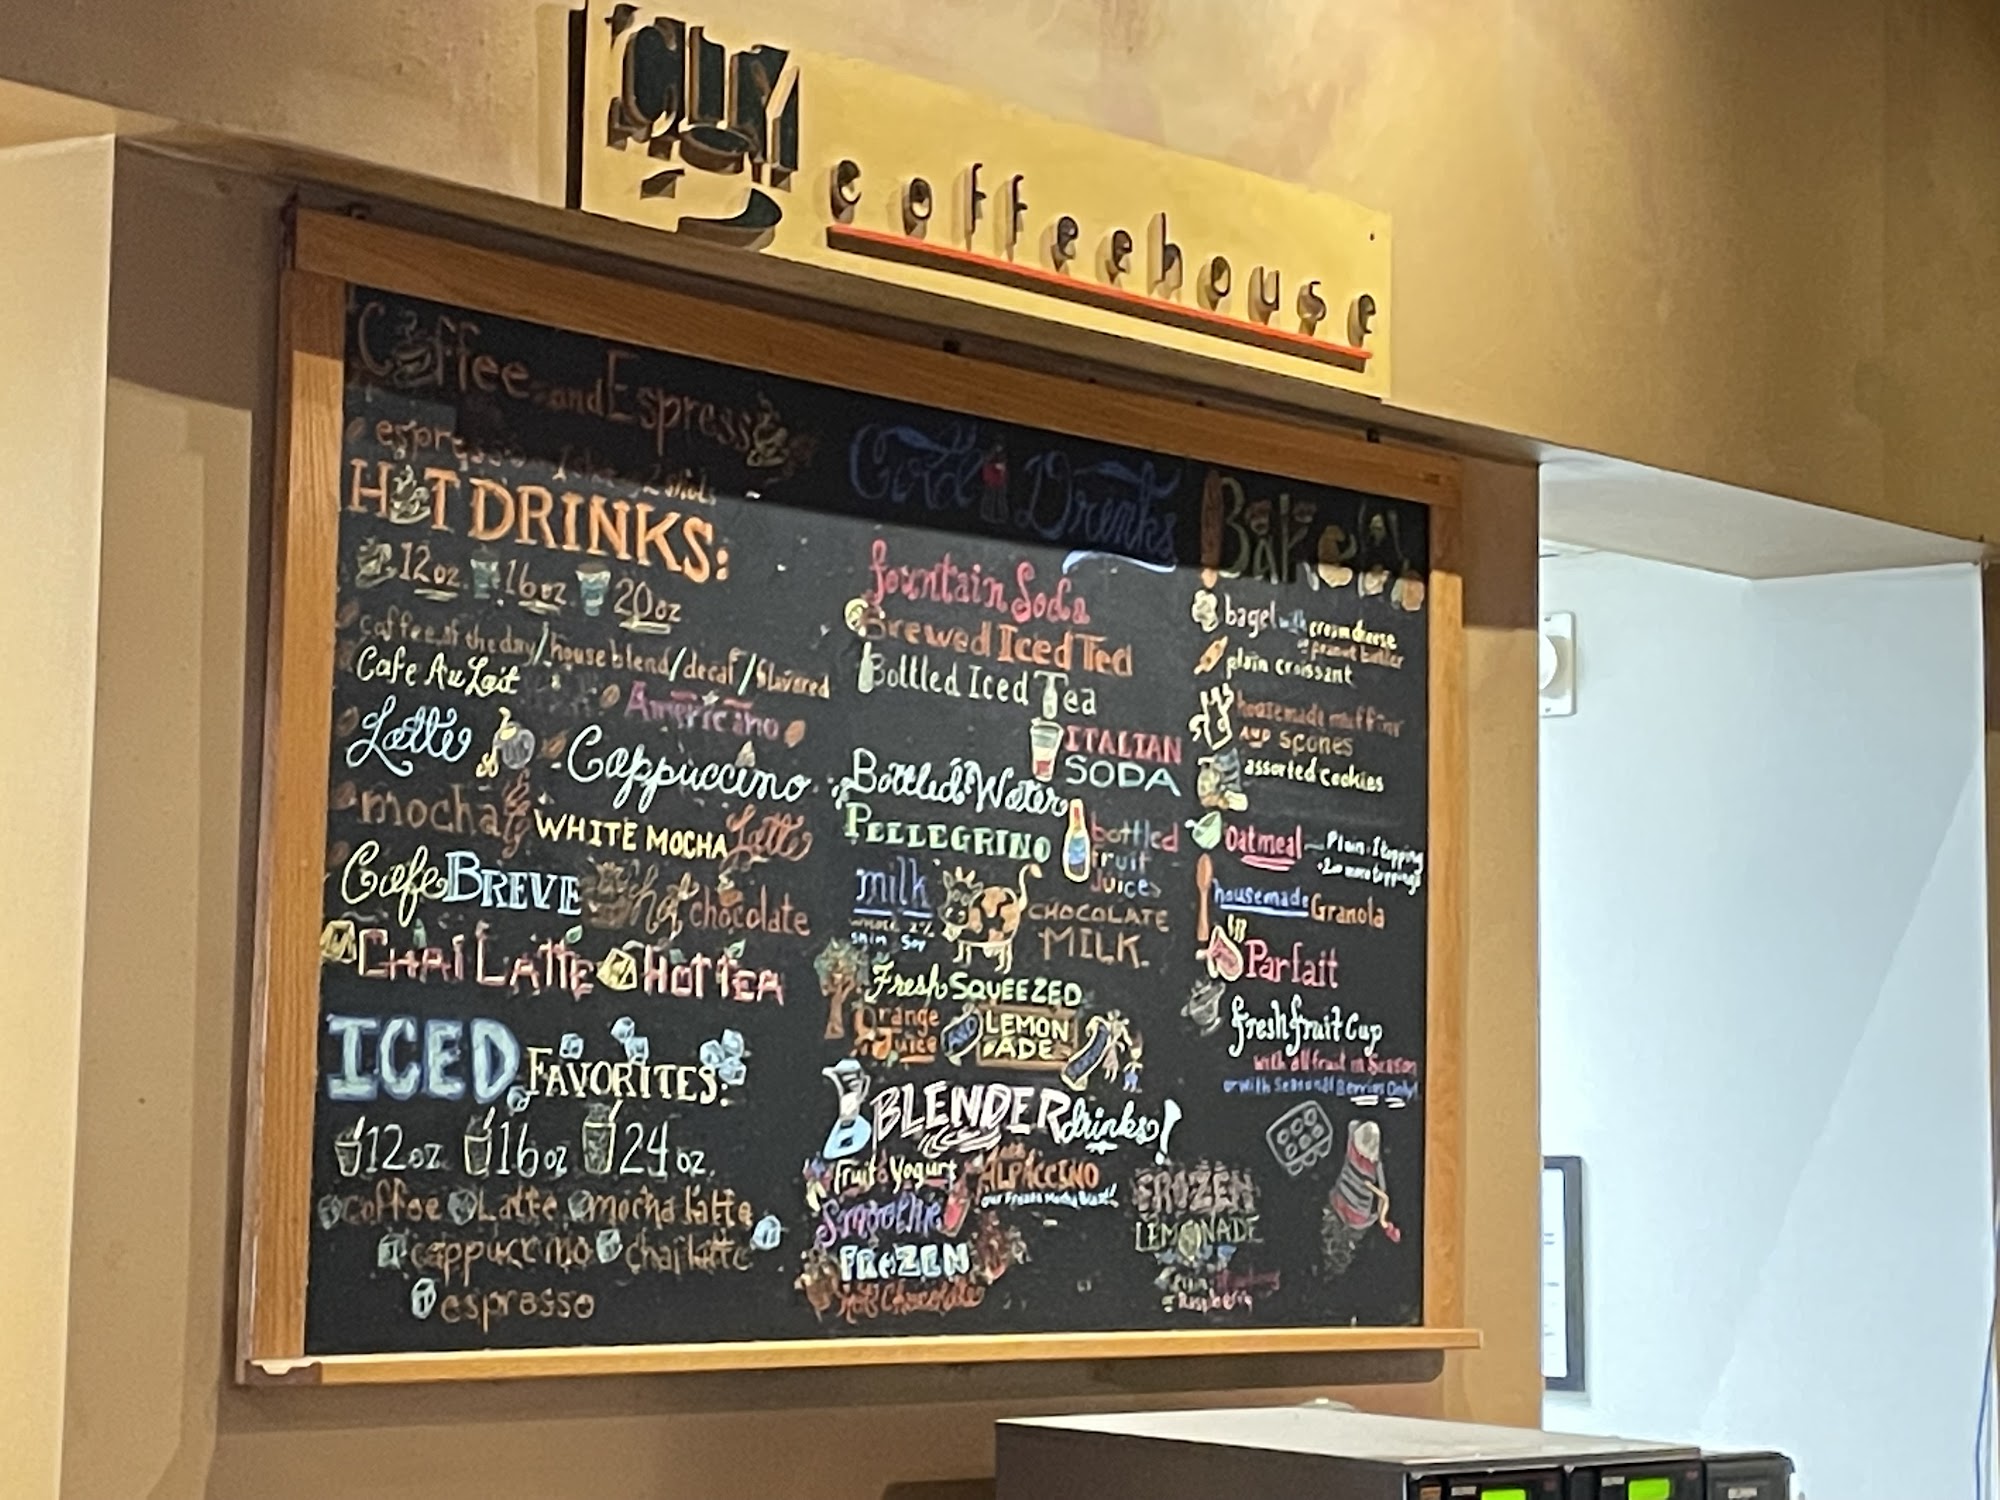 coffeehouse
Coffee and Espresso
espresso
HOT DRINKS:
12oz 16oz 20oz
coffee of the day/house blend/decaf/flavored
Cafe Au Lait
Americano
Latte
Cappuccino
mocha
WHITE MOCHA Latte
Cafe BREVE
hot chocolate
CHAI LATTE HOT TEA
ICED FAVORITES:
12oz 16oz 24oz.
coffee Latte mocha latte
cappuccino chai latte
espresso
Cold Drinks
fountain Soda
Brewed Iced Tea
Bottled Iced Tea
ITALIAN
SODA
Bottled Water
PELLEGRINO
bottled
fruit
Juices
milk
2%
Skim Soy
CHOCOLATE
MILK
Fresh SQUEEZED
Orange
Juice
LEMON
ADE
BLENDER drinks!
Fruit & Yogurt
Smoothie
ALPACCINO
our Frozen Mocha Blast!
FROZEN
Hot Chocolate
FROZEN
LEMONADE
Raspberry
bagel with cream cheese
or peanut butter
plain croissant
housemade muffins
AND scones
assorted cookies
Oatmeal - Plain · 1 topping
· 2 or more toppings
housemade Granola
Parfait
fresh fruit Cup
with all fruit in Season
or with Seasonal Berries Only!